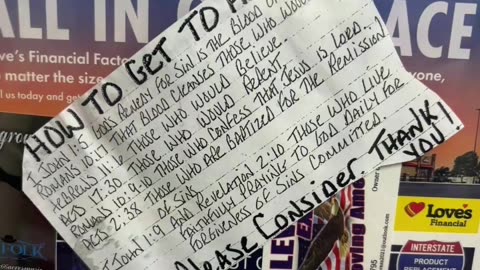 ALL IN
ACE
Love's
ve's Financial Factor
matter the size
ll us today and get
HOW TO GET TO
I JOHN 1:7 GODS REMEDY FOR SIN IS THE BLOOD OF
ROMANS 10: THAT BLOOD CLEANSES THOSE WHO WOULD
HEBREWS 11:6 THOSE WHO WOULD BELIEVE
ACTS 17:30 THOSE WHO WOULD REPENT
ROMANS 10:9,10 THOSE WHO CONFESS THAT JESUS IS LORD.
ACTS 2:38 THOSE WHO ARE BAPTIZED FOR THE REMISSION
OF SINS
I JOHN 1:9 AND REVELATION 2:10 THOSE WHO LIVE
FAITHFULLY PRAYING TO GOD DAILY FOR
FORGIVENESS OF SINS COMMITTED.
PLEASE CONSIDER. THANK
YOU!
yone,
Love's
Financial
INTERSTATE
PRODUCT
REPLACEMENT
OLK
oving Ame